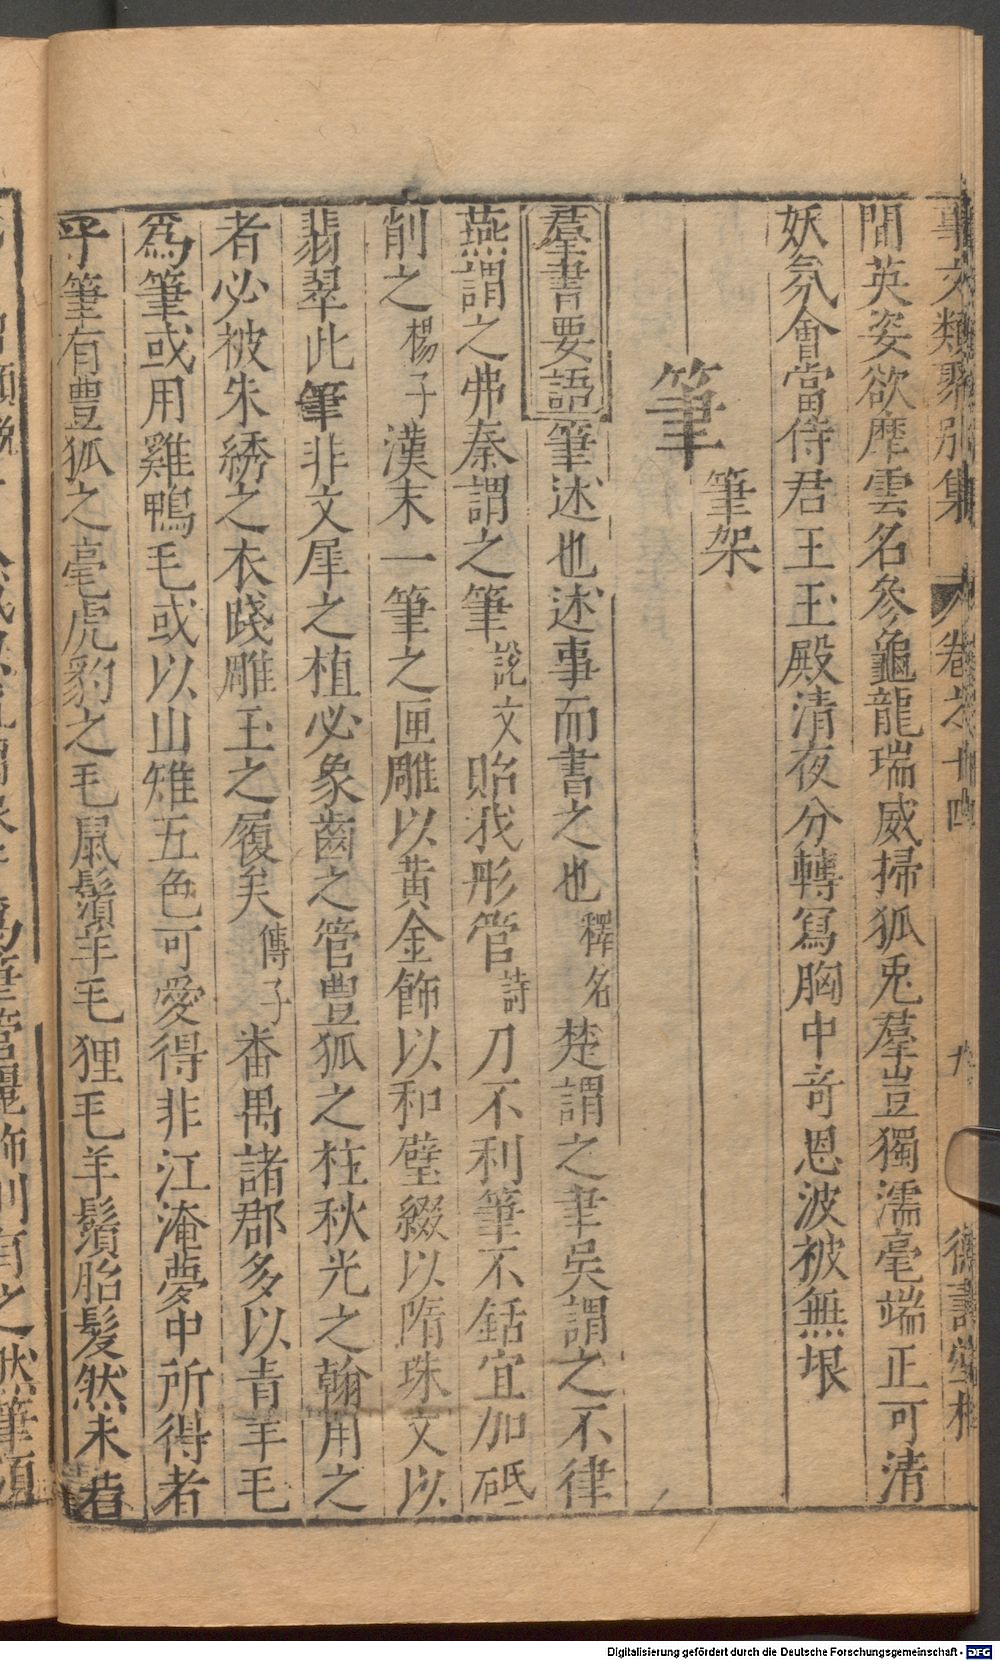 事文類聚別集 卷之十四 九 德壽堂梓
間英姿欲摩雲名參龜龍瑞威掃狐兎羣豈獨濡毫端正可清
妖氛會當侍君王玉殿清夜分轉寫胸中奇恩波被無垠
筆 筆架
羣書要語筆述也述事而書之也釋名楚謂之聿吳謂之不律
燕謂之弗秦謂之筆說文貽我彤管詩刀不利筆不銛宜加砥
削之楊子漢末一筆之匣雕以黃金飾以和璧綴以隋珠文以
翡翠此筆非文犀之植必象齒之管豊狐之柱秋光之翰用之
者必被朱綉之衣踐雕玉之履矣傅子番禺諸郡多以青羊毛
爲筆或用雞鴨毛或以山雉五色可愛得非江淹夢中所得者
乎筆有豊狐之毫虎豹之毛鼠鬚羊毛狸毛羊鬚胎髮然未若
Digitalisierung gefördert durch die Deutsche Forschungsgemeinschaft - DFG